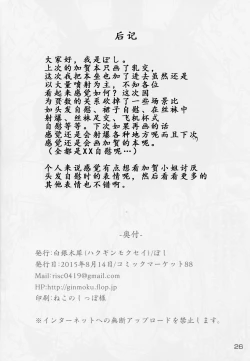 后记
大家好，我是ぽし。
上次的加贺本只画了乳交，
这次我把本垒也加了进去虽然还是
以大量喷射为主，不知各位
看起来感觉如何？这次因
为页数的关系砍掉了一些场景比
如头发自慰、裙子自慰中
射爆、丝袜足交、飞机杯式
自慰等等。下次如果再画的话
感觉还是会射爆各种地方呢而且下次
感觉还是会画加贺的本呢。
（全都是XX自慰呢…）
个人来说感觉有点想看加贺小姐讨厌
头发自慰时的表情呢，然后看看更多的
其他表情也不错啊。
-奥付-
発行:白銀木犀(ハクギンモクセイ)/ぽし
発行日:2015年8月14日/コミックマーケット88
Mail:risc0419@gmail.com
HP:http://ginmoku.flop.jp
印刷:ねこのしっぽ様
※インターネットへの無断アップロードを禁止します。
28